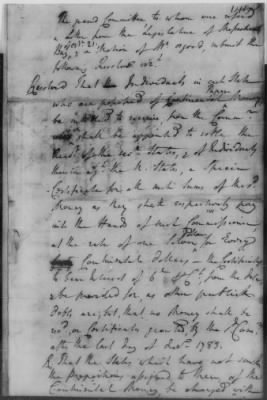 The grand Committee to whom was referred
a Letter from the Legislature of
a Motion of Mr Osgood, submit the
following Resolves viz.
Resolved That the Individuals in each State
who are possessed of Continental Money
be to receive from the Commr.
shall be appointed to settle the
of the States, & of Individuals
the U. States, a Specie
Certificate for all such Sums of the sd
Money as they shall respectively pay
into the Hands of such Commissioner,
at the rate of one Dollar for Every
Continental Dollars — the Certificates
to bear Interest of 6 from the Date
& be provided for, as other publick
Debts are, but, that no Money shall be
recd, or Certificates granted, by the Comr.
after the last Day of Decr. 1783.
R. That the States which have not
the proportions assigned to them of the
Continental Money, be charged with